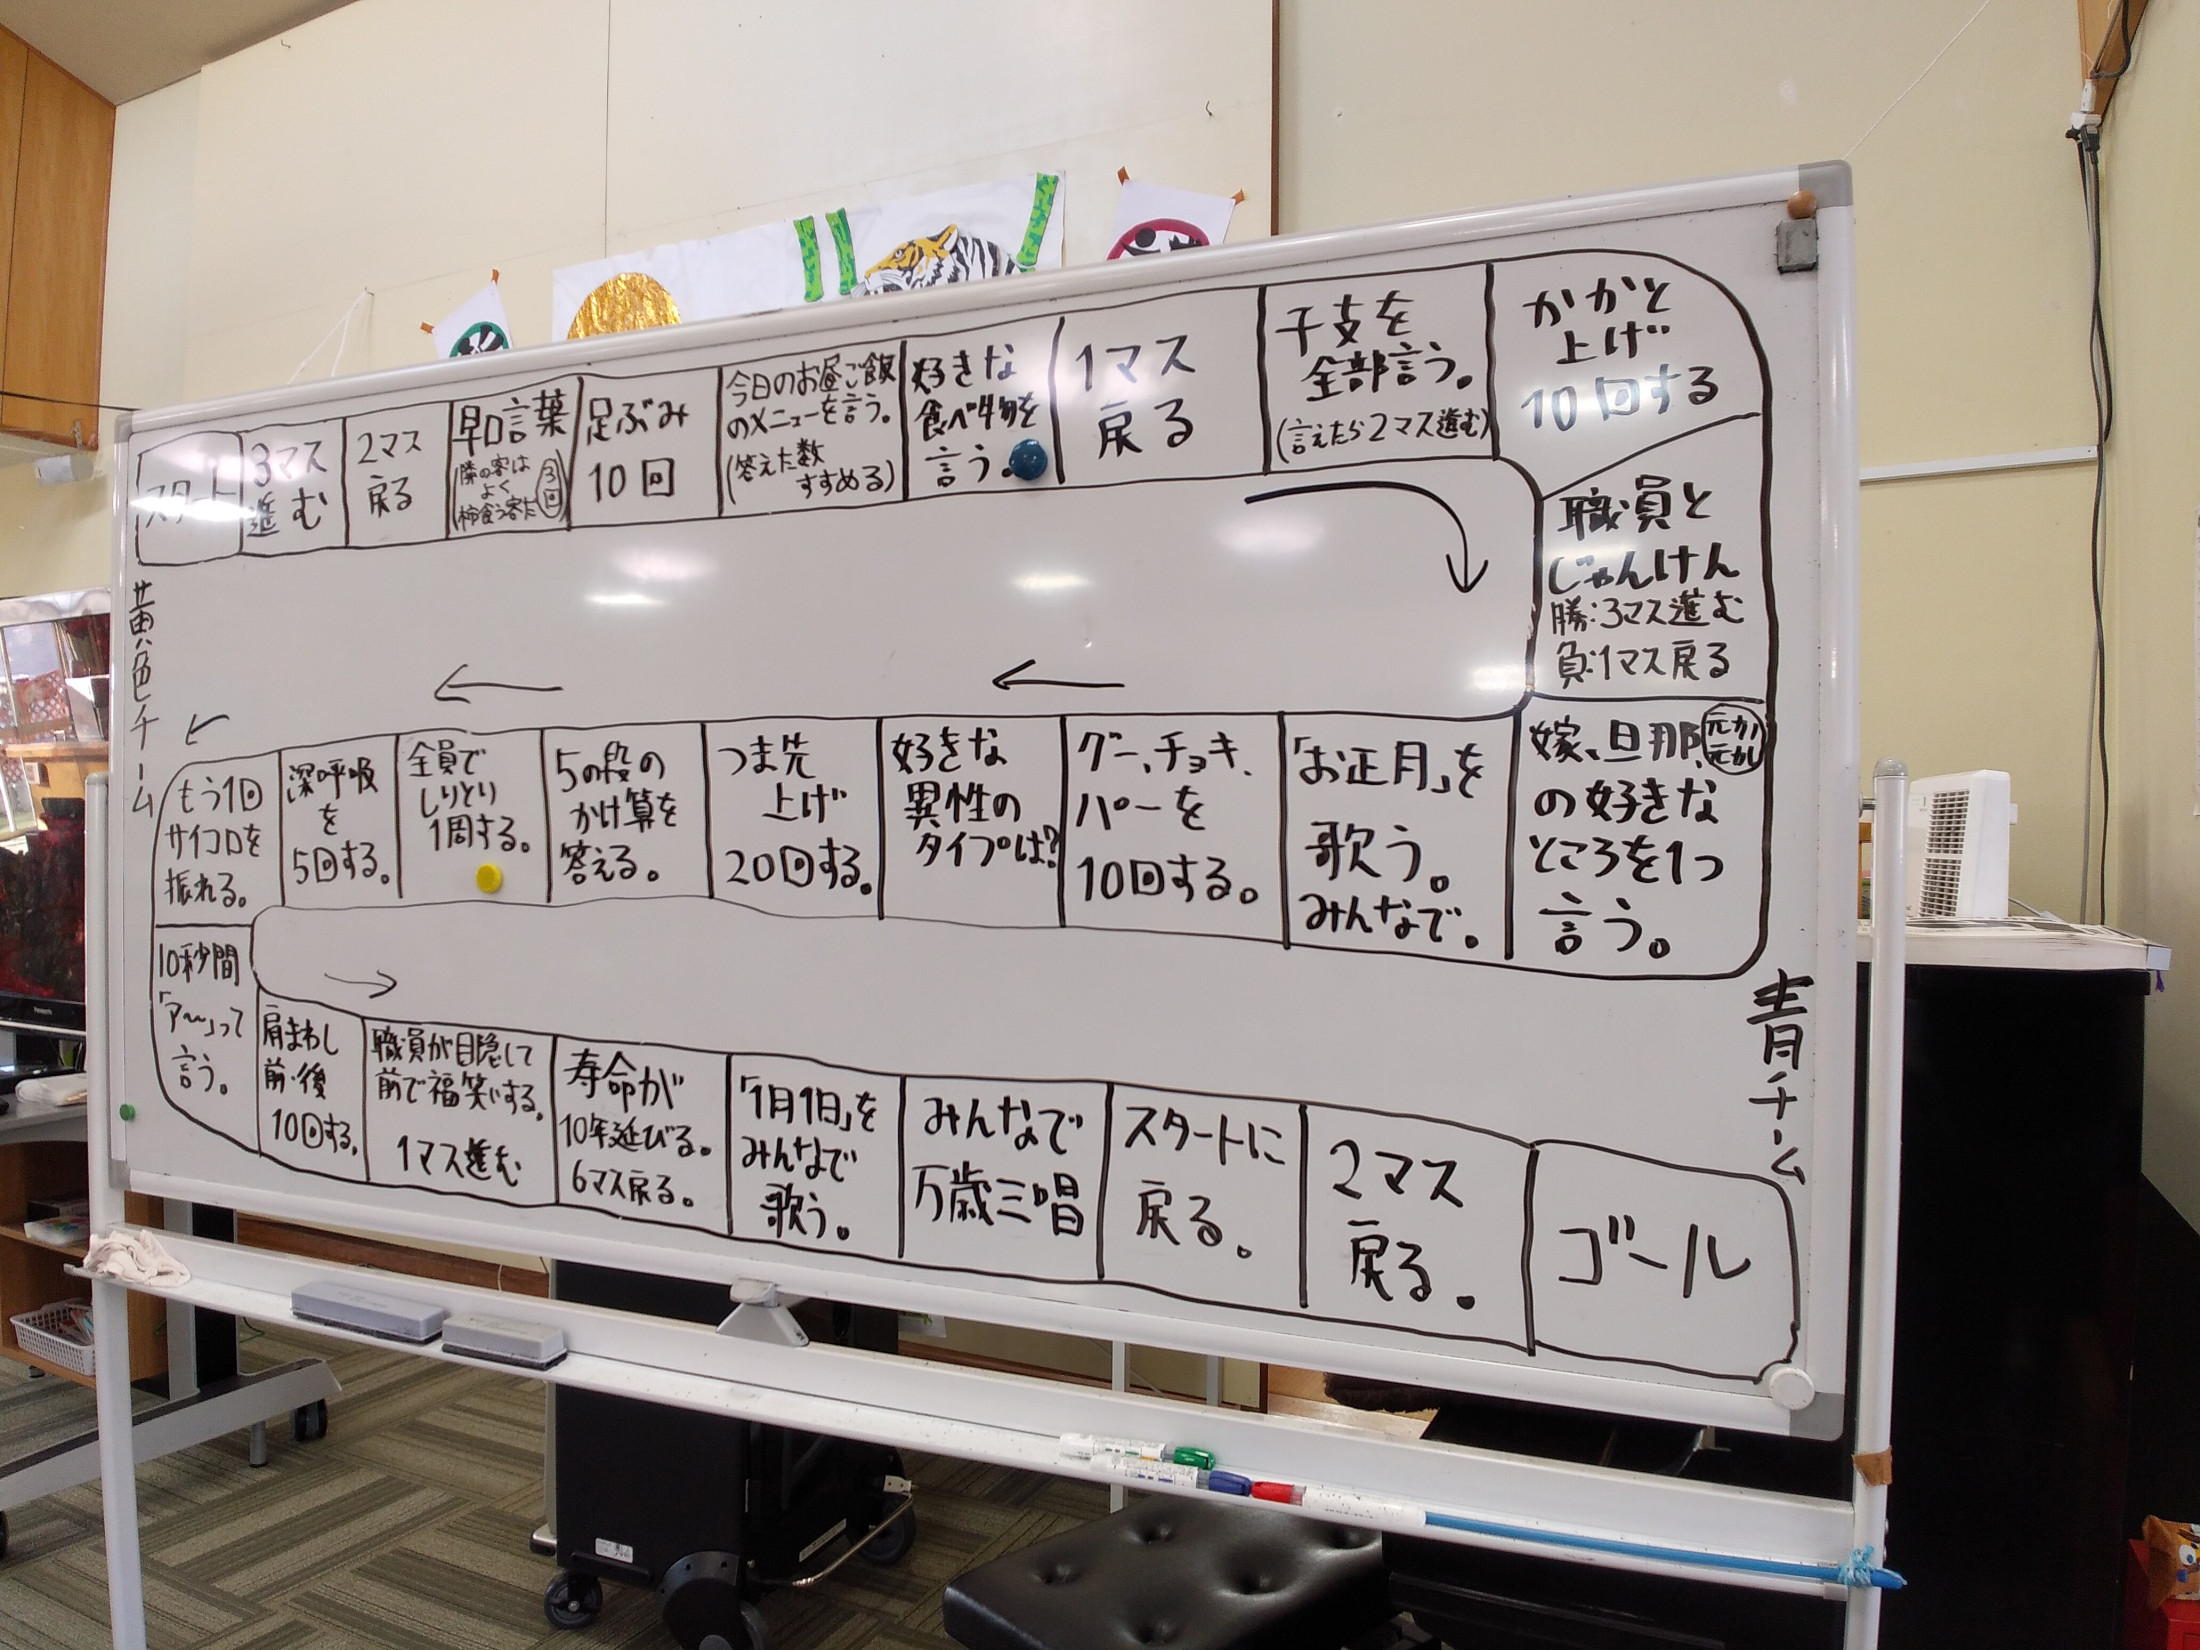 スタート
3マス
進む
2マス
戻る
早口言葉
(隣の客は
よく
柿食う客だ)
3回
足ぶみ
10回
今日のお昼ご飯
のメニューを言う。
(答えた数
すすめる)
好きな
食べ物を
言う。
1マス
戻る
干支を
全部言う。
(言えたら2マス進む)
かかと
上げ
10回する
職員と
じゃんけん
勝:3マス進む
負:1マス戻る
嫁、旦那、
元カノ
元カレ
の好きな
ところを1つ
言う。
「お正月」を
歌う。
みんなで。
グー、チョキ、
パーを
10回する。
好きな
異性の
タイプは?
つま先
上げ
20回する。
5の段の
かけ算を
答える。
全員で
しりとり
1周する。
深呼吸
を
5回する。
もう1回
サイコロを
振れる。
10秒間
「ア〜」って
言う。
肩まわし
前・後
10回する。
職員が目隠して
前で福笑いする。
1マス進む
寿命が
10年延びる。
6マス戻る。
「1月1日」を
みんなで
歌う。
みんなで
万歳三唱
スタートに
戻る。
2マス
戻る。
ゴール
黄色チーム
青チーム